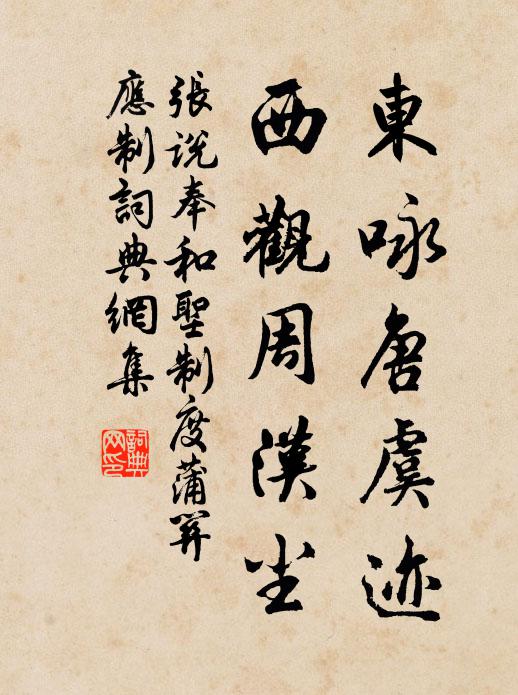 東咏唐虞迹
西觀周漢尘
張說奉和聖制度蒲關
應制詞典網集
詞典
网印